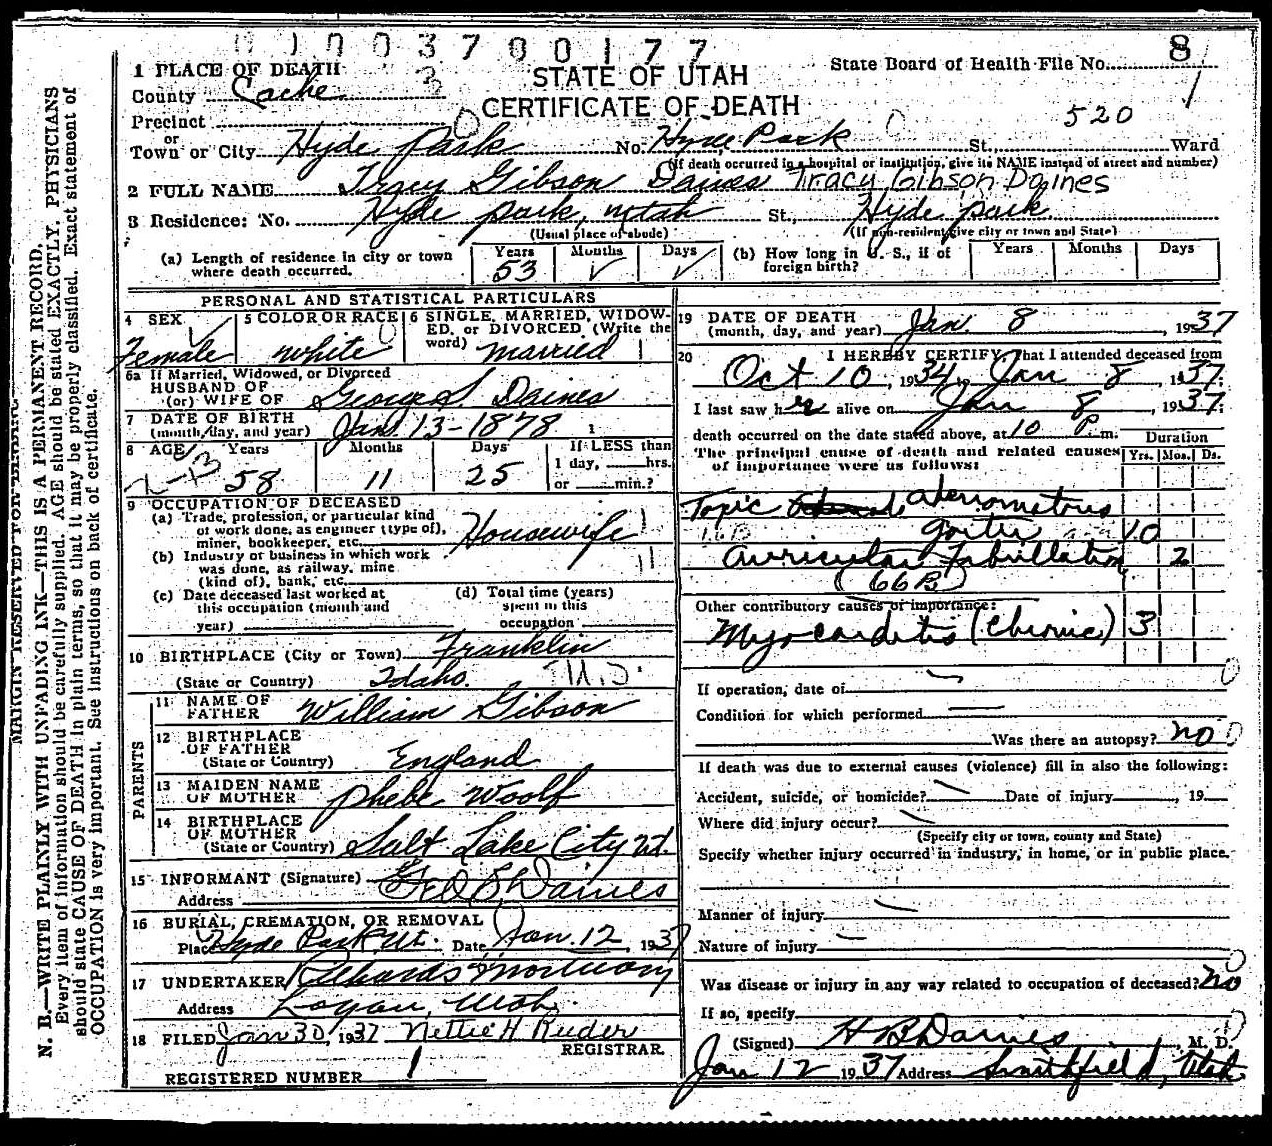 0 1 0 0 3 7 0 0 1 7 7
8
1 PLACE OF DEATH
STATE OF UTAH
State Board of Health File No.
County Cache 3
CERTIFICATE OF DEATH
520
Precinct
or
Town or City Hyde Park No. Hyde Park St., Ward
(If death occurred in a hospital or institution, give its NAME instead of street and number)
2 FULL NAME Tracy Gibson Daines Tracy Gibson Daines
3 Residence: No. Hyde park, Utah St., Hyde park
(Usual place of abode) (If non-resident give city or town and State)
(a) Length of residence in city or town where death occurred. Years 53 Months ✓ Days ✓ (b) How long in U. S., if of foreign birth? Years Months Days
PERSONAL AND STATISTICAL PARTICULARS
4 SEX Female
5 COLOR OR RACE White
6 SINGLE, MARRIED, WIDOWED, or DIVORCED (Write the word) Married
6a If Married, Widowed, or Divorced
HUSBAND OF
(or) WIFE OF George S Daines
7 DATE OF BIRTH
(month, day, and year) Jan 13-1878
8 AGE Years 58 Months 11 Days 25 If LESS than 1 day, hrs. or min.?
2-13
9 OCCUPATION OF DECEASED
(a) Trade, profession, or particular kind
of work done, as engineer (type of),
miner, bookkeeper, etc. Housewife
(b) Industry or business in which work
was done, as railway, mine
(kind of), bank, etc.
(c) Date deceased last worked at
this occupation (month and
year)
(d) Total time (years)
spent in this
occupation
10 BIRTHPLACE (City or Town) Franklin
(State or Country) Idaho.
PARENTS
11 NAME OF
FATHER William Gibson
12 BIRTHPLACE
OF FATHER
(State or Country) England
13 MAIDEN NAME
OF MOTHER Phebe Woolf
14 BIRTHPLACE
OF MOTHER
(State or Country) Salt Lake City Ut.
15 INFORMANT (Signature) Geo S Daines
Address
16 BURIAL, CREMATION, OR REMOVAL
Place Hyde Park Ut. Date Jan. 12, 1937
17 UNDERTAKER Richards Mortuary
Address Logan, Utah.
18 FILED Jan 30, 1937 Nettie H Reeder
REGISTRAR
REGISTERED NUMBER 1
19 DATE OF DEATH
(month, day, and year) Jan 8, 1937
20 I HEREBY CERTIFY, That I attended deceased from
Oct 10, 1934, Jan 8, 1937;
I last saw her alive on Jan 8, 1937;
death occurred on the date stated above, at 10 P. m.
The principal cause of death and related causes
of importance were as follows:
Duration
Yrs. Mos. Ds.
Toxic adenomatous
goiter 10
Auricular Fabrillation 2
(66B)
Other contributory causes of importance:
Myocarditis (Chronic) 3
If operation, date of
Condition for which performed
Was there an autopsy? no
If death was due to external causes (violence) fill in also the following:
Accident, suicide, or homicide? Date of injury , 19
Where did injury occur?
(Specify city or town, county and State)
Specify whether injury occurred in industry, in home, or in public place.
Manner of injury
Nature of injury
Was disease or injury in any way related to occupation of deceased? no
If so, specify
(Signed) H B Daines, M. D.
Jan 12 1937 Address Smithfield, Utah
MARGIN RESERVED FOR BINDING
N. B.—WRITE PLAINLY WITH UNFADING INK—THIS IS A PERMANENT RECORD.
Every item of information should be carefully supplied. AGE should be stated EXACTLY. PHYSICIANS
should state CAUSE OF DEATH in plain terms, so that it may be properly classified. Exact statement of
OCCUPATION is very important. See instructions on back of certificate.